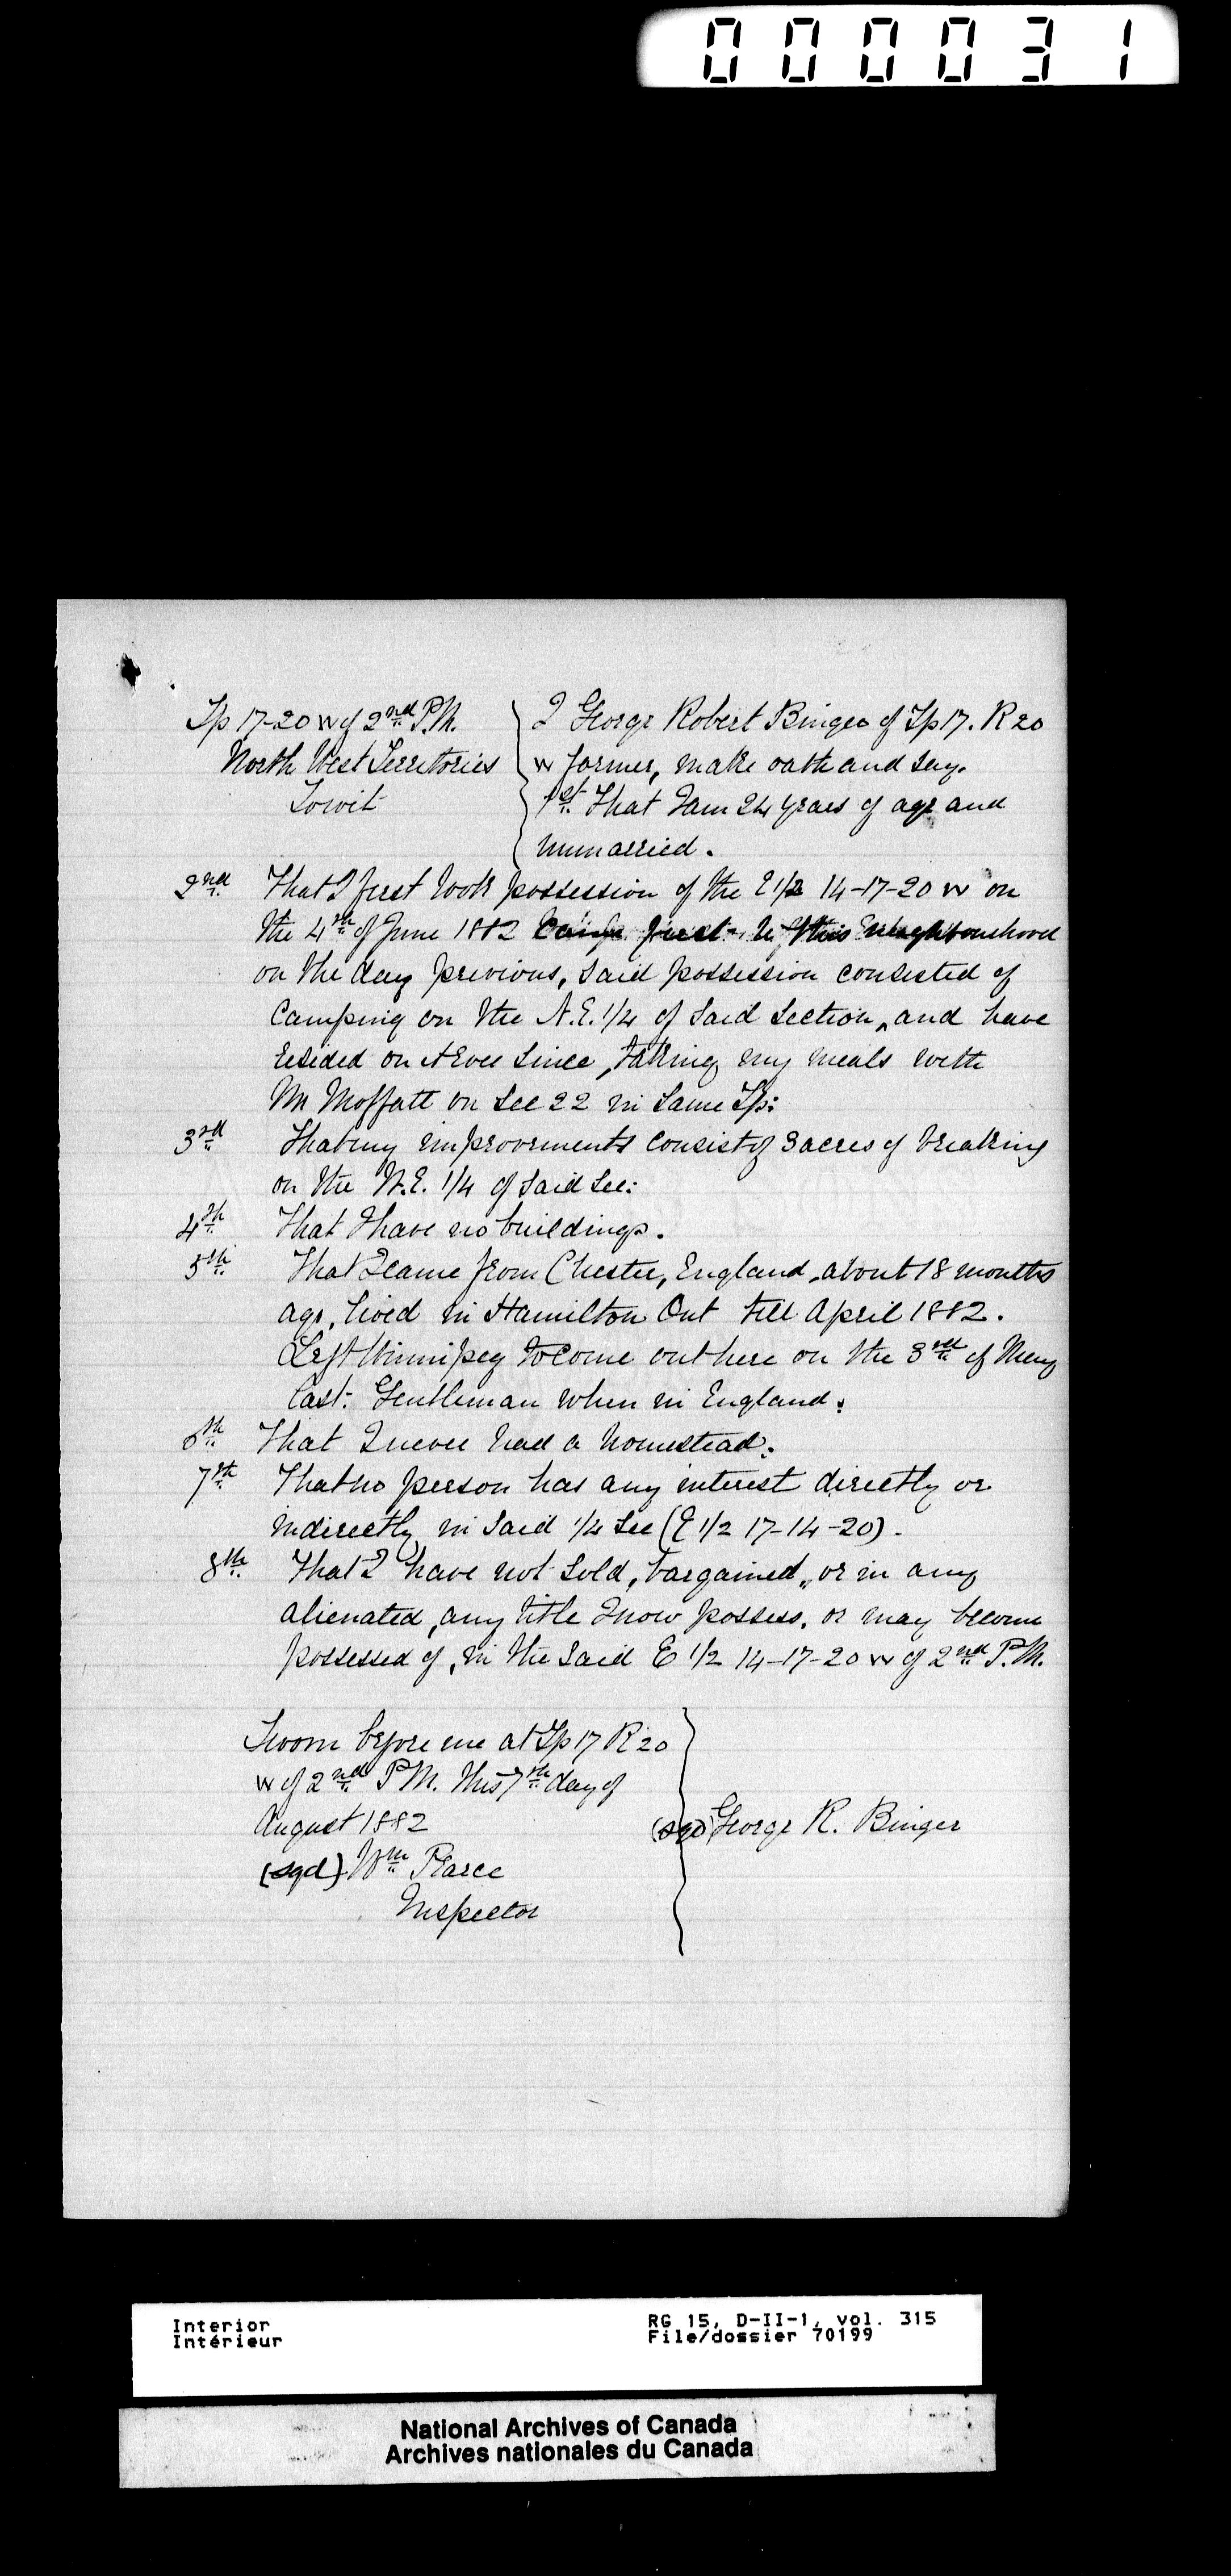 000031
Tp 17-20 W of 2nd P.M.
North West Territories
Towit
I George Robert Binger of Tp 17. R 20
W farmer, make oath and say.
1st. That I am 24 years of age and
unmarried.
2nd That I first took possession of the E 1/2 14-17-20 W on
the 4th of June 1882 Came first to this neighbourhood
on the day previous, said possession consisted of
Camping on the N.E. 1/4 of said section, and have
resided on it ever since, taking my meals with
Mr Moffatt on Sec 22 in same Tp:
3rd That my improvements consist of 3 acres of breaking
on the N.E. 1/4 of said Sec:
4th That I have no buildings.
5th That I came from Chester, England, about 18 months
ago, lived in Hamilton Ont till April 1882.
Left Winnipeg to come out here on the 3rd of May
last. Gentleman when in England.
6th That I never had a homestead.
7th That no person has any interest directly or
indirectly in said 1/4 Sec (E 1/2 17-14-20).
8th That I have not sold, bargained, or in any
alienated, any title I now possess, or may become
possessed of, in the said E 1/2 14-17-20 W of 2nd P.M.
Sworn before me at Tp 17 R 20
W of 2nd P.M. this 7th day of
August 1882
(sgd) George R. Binger
(sgd) Wm Pearce
Inspector
Interior
Intérieur
RG 15, D-II-1, vol. 315
File/dossier 70199
National Archives of Canada
Archives nationales du Canada